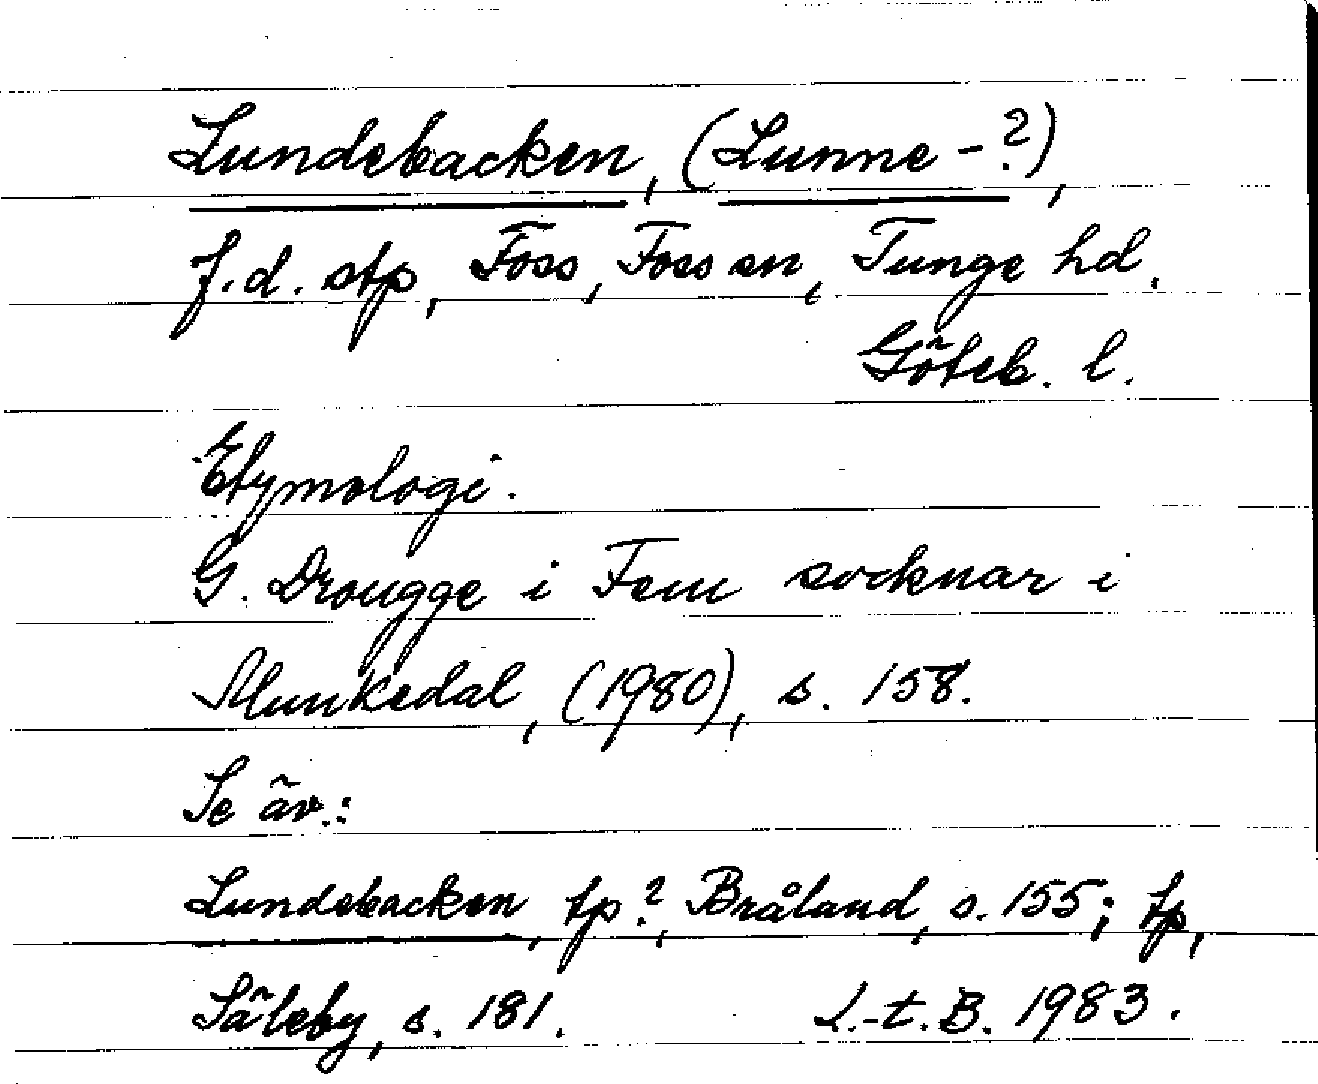 Lundebacken, (Lunne-?),
f.d. stp, Foss, Foss sn, Tunge hd.
Göteb. l.
Etymologi.
G. Drougge i Fem socknar i
Munkedal, (1980), s. 158.
Se äv.:
Lundebacken, tp?, Bråland, s. 155; tp,
Säleby, s. 181. L.-t. B. 1983.